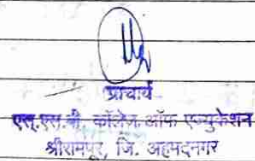 प्राचार्य
एस.एस.बी. कॉलेज ऑफ एज्युकेशन
श्रीरामपूर, जि. अहमदनगर